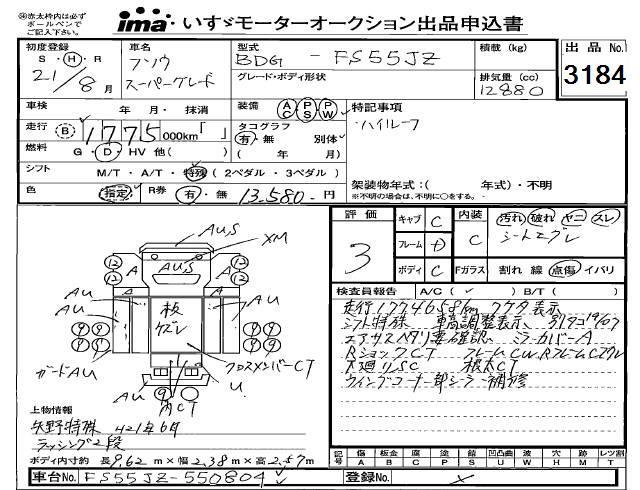 ㊟赤太枠内は必ず
ボールペンで
ご記入下さい。
ima いすゞモーターオークション出品申込書
初度登録 車名 型式 積載 (kg) 出品No.
S・H・R フソウ BDG - FS55JZ
21/8月 スーパーグレート グレード・ボディ形状 排気量 (cc) 3184
12880
車検 年 月・抹消 装備 AC PS PW 特記事項
走行 B 1775 000km「 」 タコグラフ ハイルーフ
有・無 別体
燃料 G・D・HV 他( ) ( 年 月)
シフト M/T・A/T・特殊 (2ペダル・3ペダル) 架装物年式:( 年式)・不明
色 指定 R券 有・無 13,580.円 ※不明の場合は、不明に○をする。
評価 3 キャブ C 内装 C 汚れ 破れ ヤニ スレ
フレーム D シートエグレ
ボディ C Fガラス 割れ 線 点傷 イバリ
AU,S XM
12 12 A AU,S A 12 12
A A
AU 板ケズレ AU
ガードAU クロスメンバーCT
U
AU 内CT
検査員報告 A/C( ✓ ) B/T( )
走行1774658km
シフト特殊 車高調整表示
エアサス ミラーカバーA
RショックCT フレームCW
下廻りSC 根太CT
ウイングコーナー部シーラー補修
上物情報
矢野特殊 H21年6月
ラッシング2段
ボディ内寸約 長9.62m×幅2.38m×高2.57m
記号 傷 A 板金 B 腐 C 塗 P 凹 S 凸凹曲 U 欠 W 穴 H 跡 M レツ割 T
車台No. FS55JZ-550804 登録No.